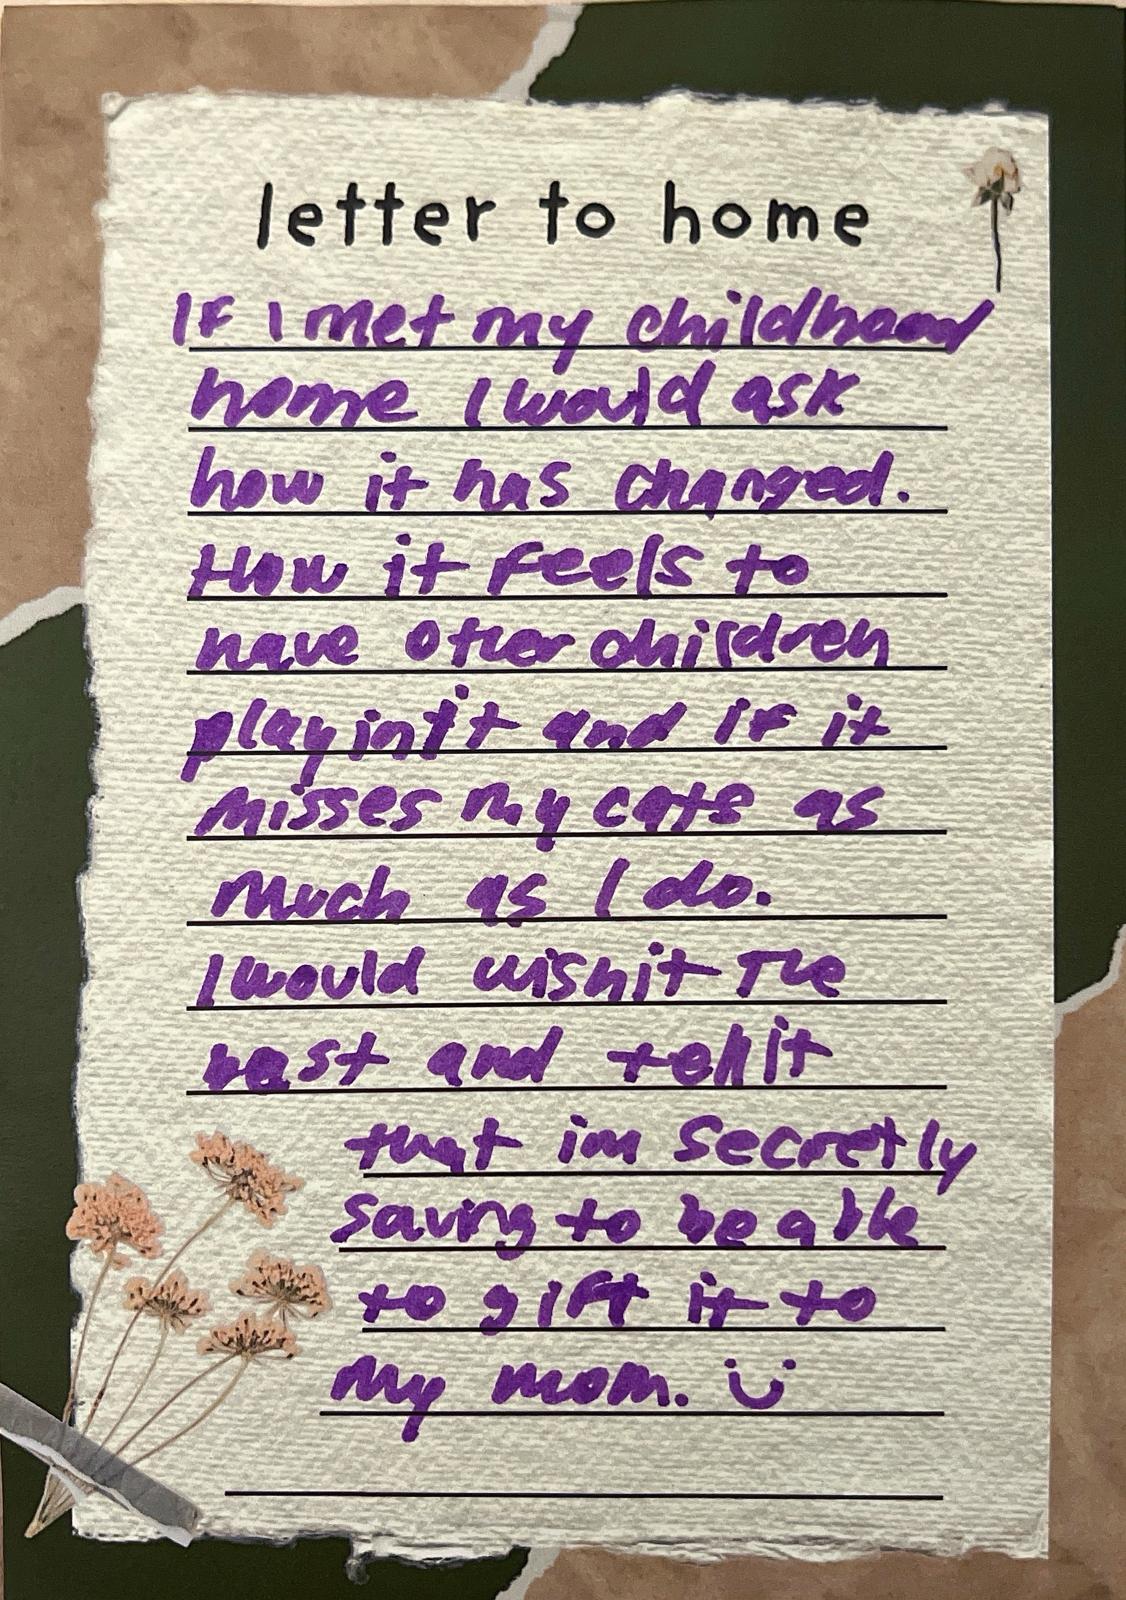 letter to home
If I met my childhood
home I would ask
how it has changed.
How it feels to
have other children
play in it and if it
misses my cats as
much as I do.
I would wish it the
best and tell it
that im secretly
saving to be able
to gift it to
my mom. :)